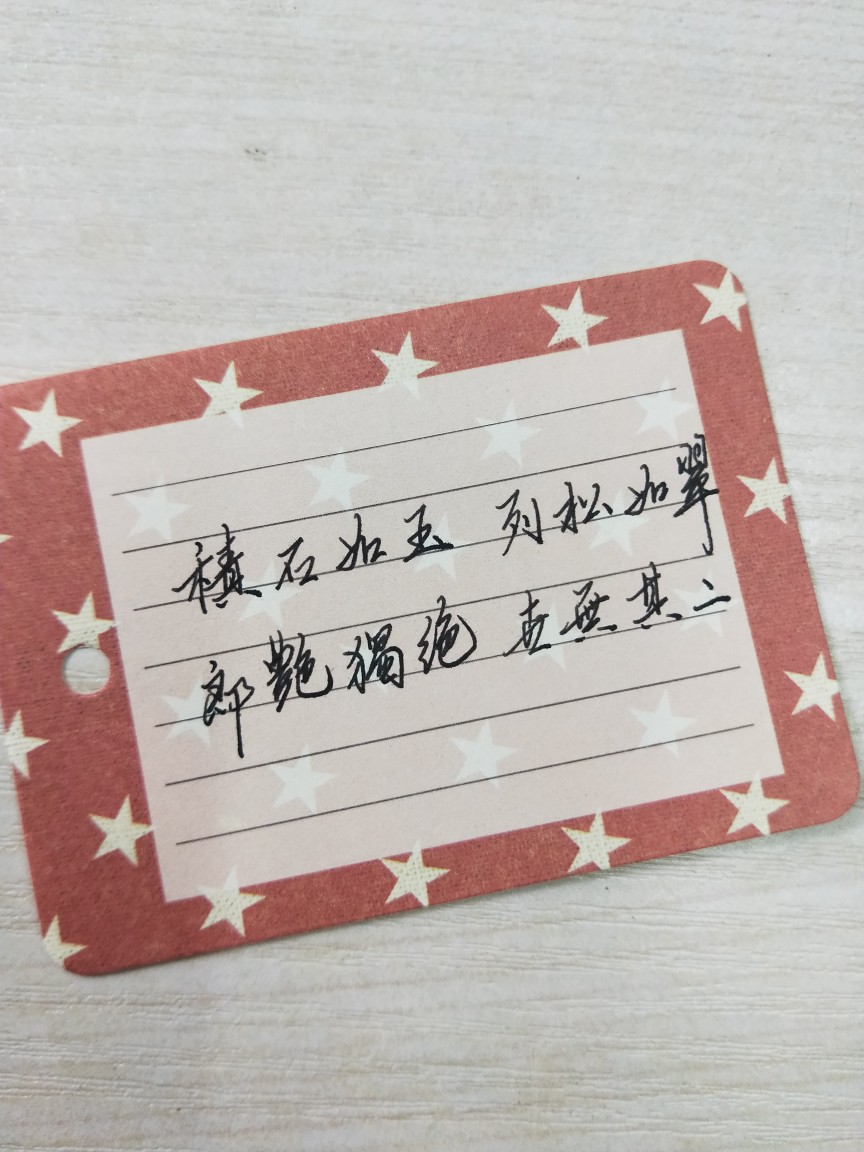 積石如玉 列松如翠
郎艷獨絕 世無其二